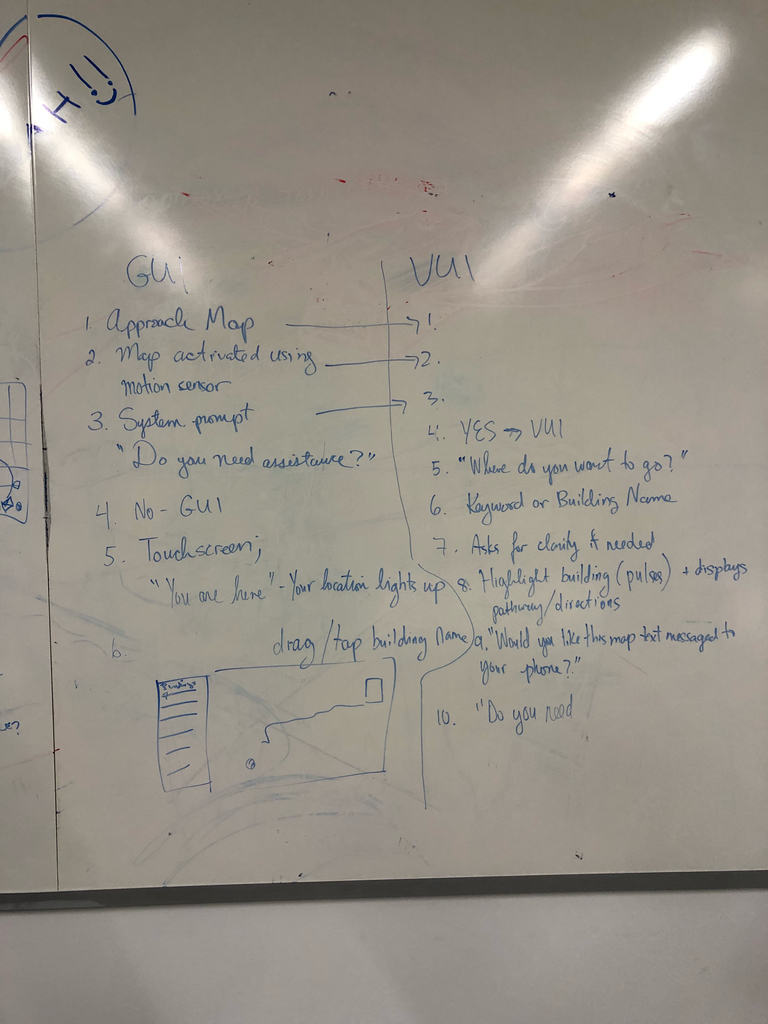 H !!
GUI
1. Approach Map
2. Map activated using
motion sensor
3. System prompt
"Do you need assistance?"
4. No - GUI
5. Touchscreen;
"You are here" - Your location lights up
6. drag/tap building Name
VUI
1.
2.
3.
4. YES → VUI
5. "Where do you want to go?"
6. Keyword or Building Name
7. Asks for clarity if needed
8. Highlight building (pulses) + displays
pathway/directions
9. "Would you like this map text messaged to
your phone?"
10. "Do you need